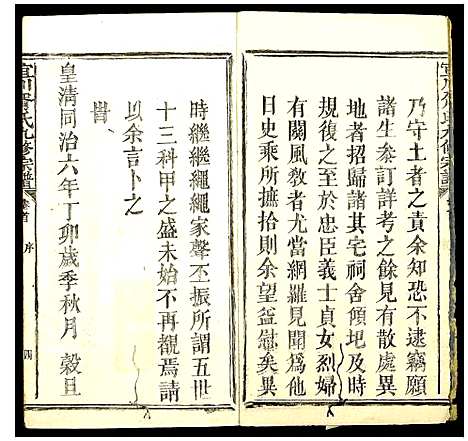 宜川胥氏九修宗譜
乃守土者之責余知恐不逮竊願
諸生叅訂詳考之餘見有散處異
地者招歸諸其宅祠舍傾圮及時
規復之至於忠臣義士貞女烈婦
有關風敎者尤當網羅見聞爲他
日史乘所摭拾則余望益慰矣異
時繼繼繩繩家聲丕振所謂五世
十三科甲之盛未始不再覩焉請
以余言卜之
皇清同治六年丁卯歲季秋月 穀旦
宜川胥氏九修宗譜 卷首 序 四